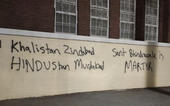 Khalistan Zindabad
HINDUstan Murdabad
Sant Bhindranwale is
MARTYR